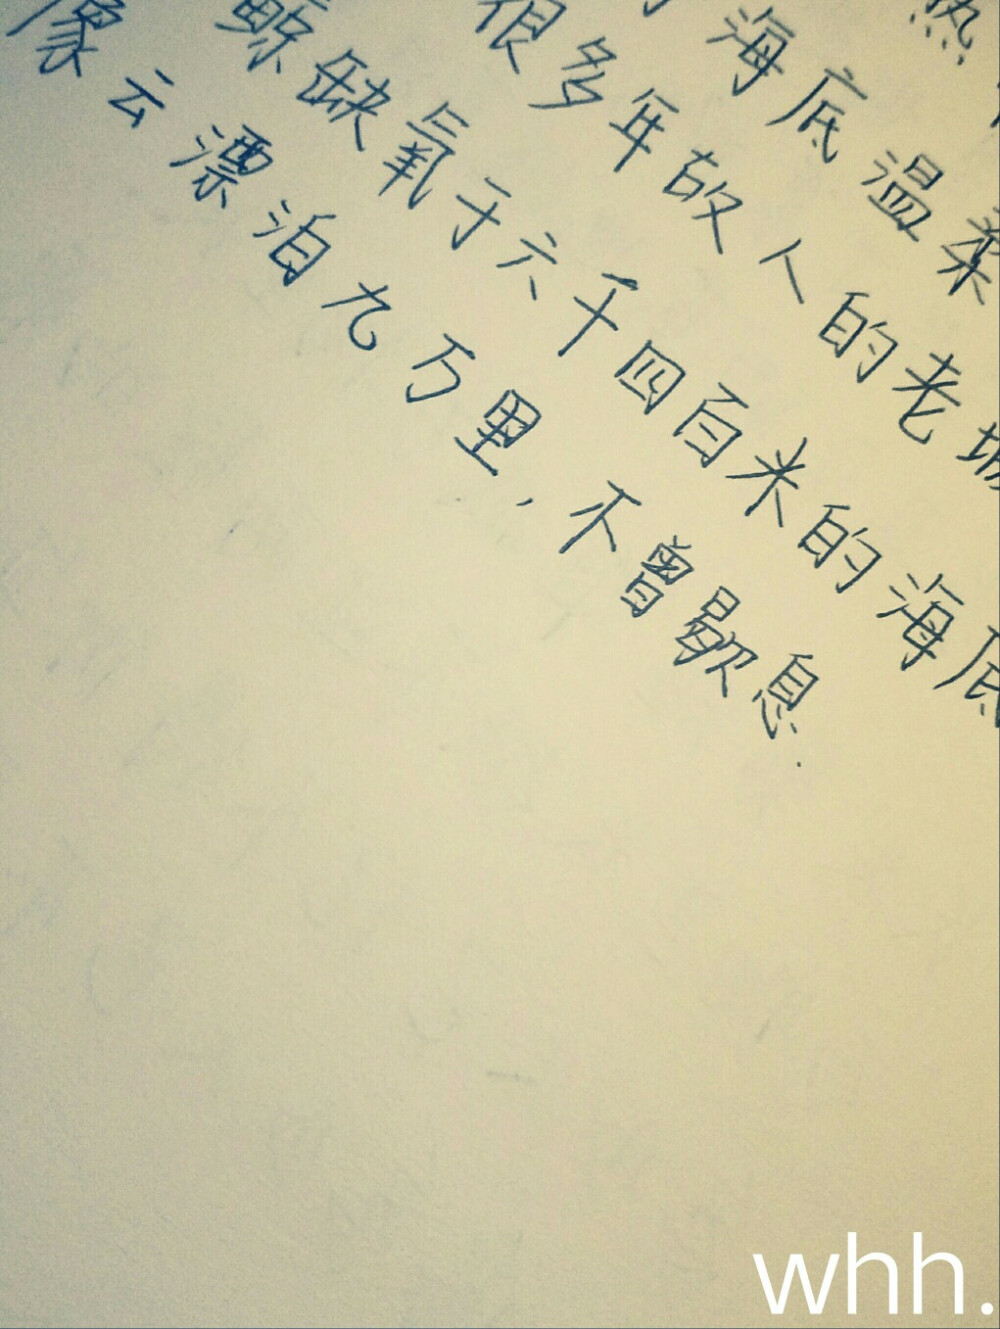 热
海底温柔
很多年故人的老城
鲸缺氧于六千四百米的海底
像云漂泊九万里，不曾歇息.
whh.